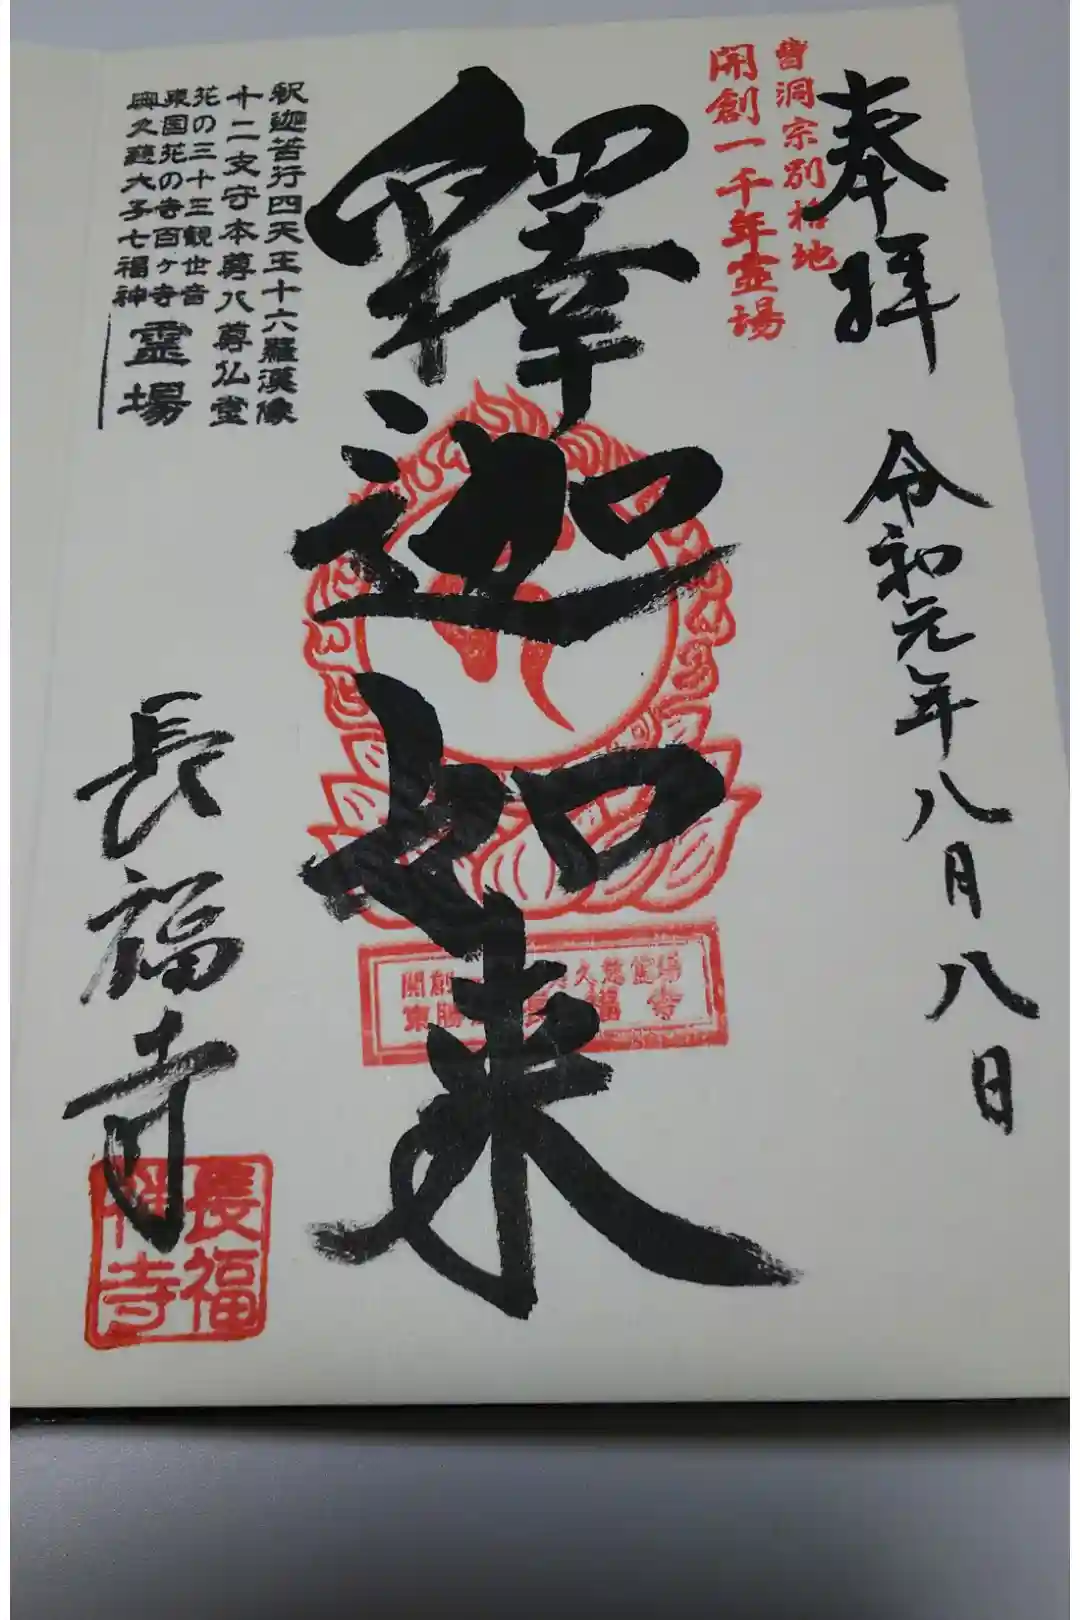 奉拝
令和元年八月八日
曹洞宗別格地
開創一千年霊場
釋迦如来
開創 久慈霊場
東勝 長福寺
釈迦苦行四天王十六羅漢像
十二支守本尊八尊仏堂
花の三十三観世音
東国花の寺百ヶ寺
奥久慈大子七福神
霊場
長福寺
長福禅寺